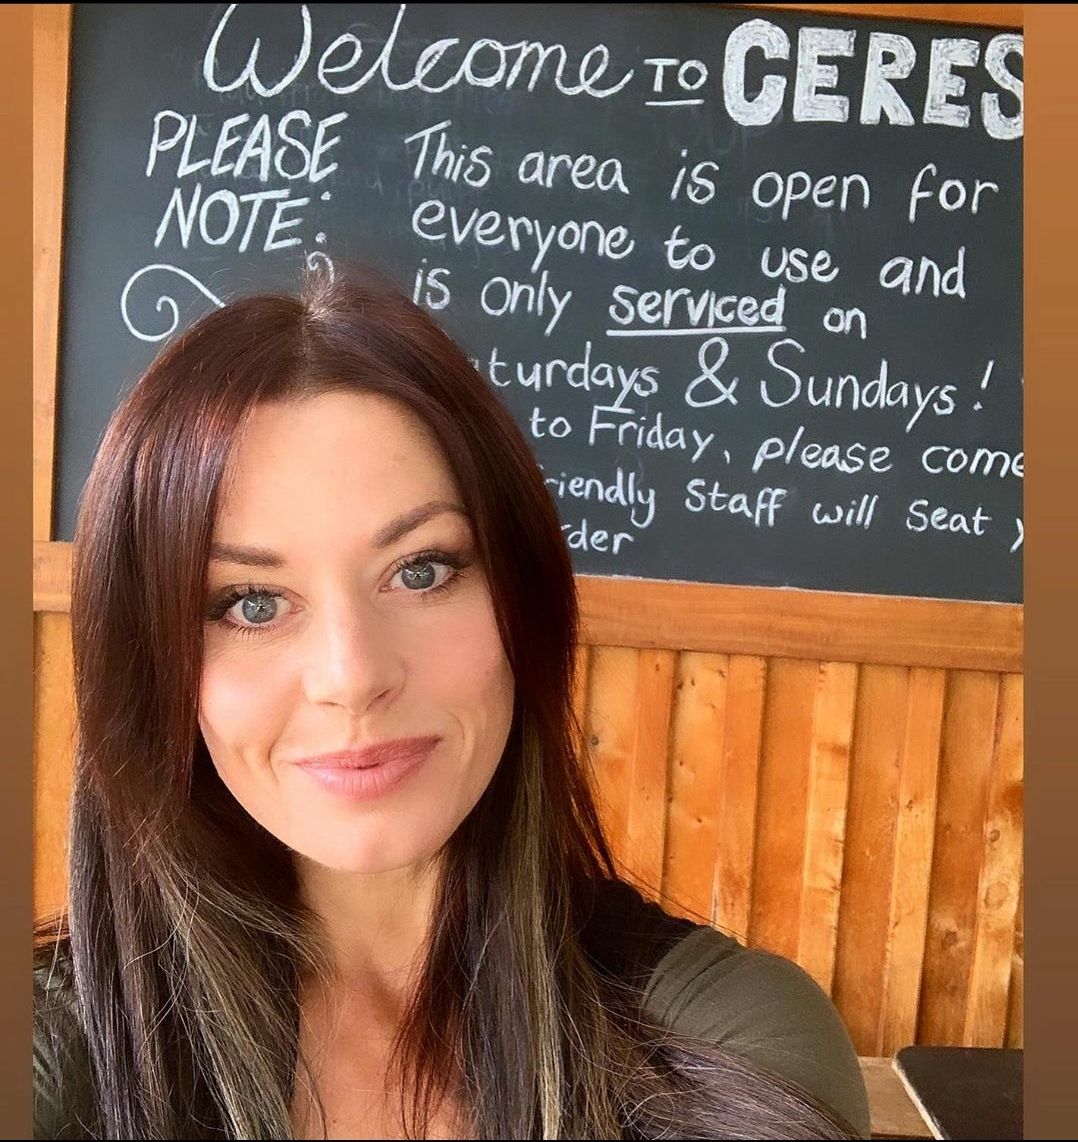 Welcome TO CERES
PLEASE NOTE:
This area is open for
everyone to use and
is only serviced on
turdays & Sundays!
to Friday, please come
riendly Staff will Seat
der